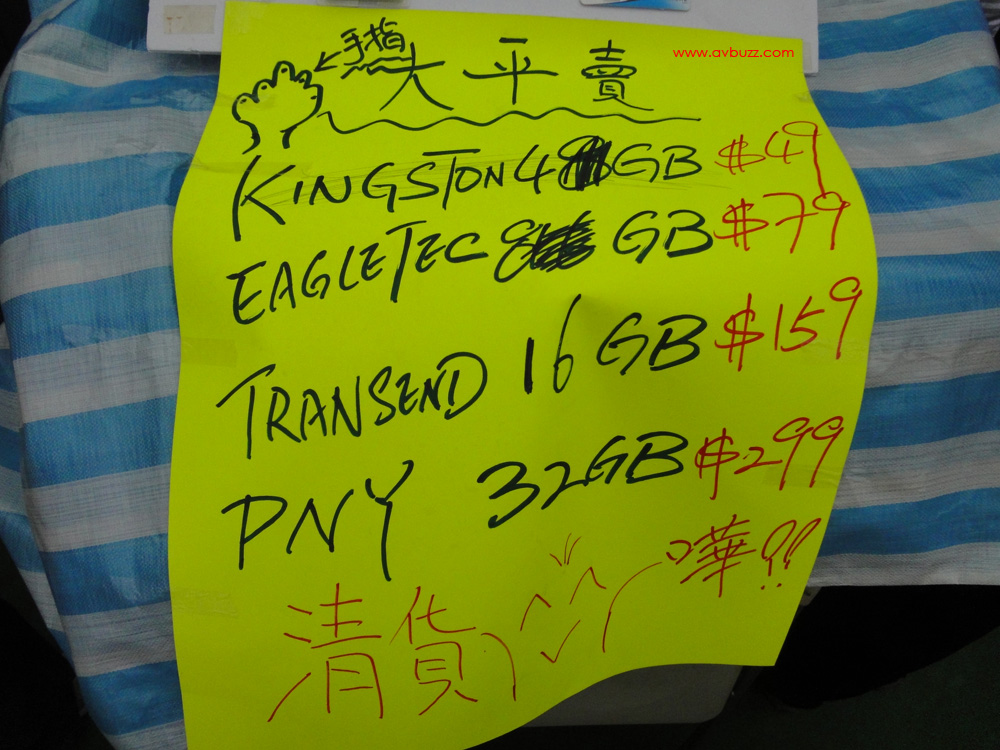 www.avbuzz.com
手指
大平賣
KINGSTON 4 GB $49
EAGLETEC 8 GB $79
TRANSEND 16 GB $159
PNY 32GB $299
嘩!!
清貨